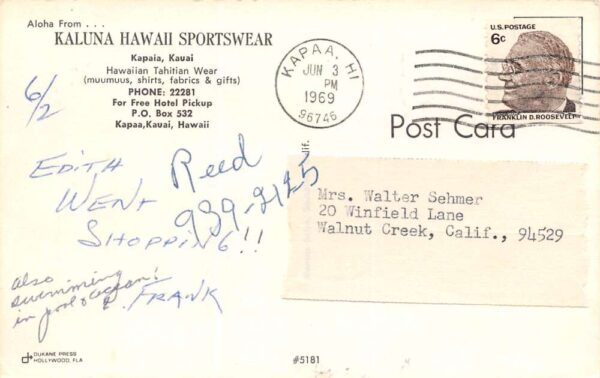 Aloha From . . .
KALUNA HAWAII SPORTSWEAR
Kapaia, Kauai
Hawaiian Tahitian Wear
(muumuus, shirts, fabrics & gifts)
PHONE: 22281
For Free Hotel Pickup
P.O. Box 532
Kapaa, Kauai, Hawaii
KAPAA, HI
JUN 3
PM
1969
96746
U.S. POSTAGE
6c
FRANKLIN D. ROOSEVELT
Post Card
6/2
EDITH
WENT
SHOPPING!!
Reed
939-2125
also
swimming
in pool & ocean!
FRANK
lif.
Mrs. Walter Sehmer
20 Winfield Lane
Walnut Creek, Calif., 94529
DUKANE PRESS
HOLLYWOOD, FLA
#5181